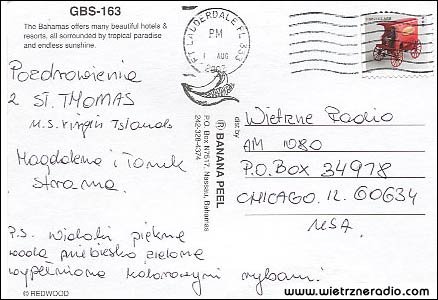 GBS-163
The Bahamas offers many beautiful hotels &
resorts, all surrounded by tropical paradise
and endless sunshine.
FT LAUDERDALE FL 333
PM
1 AUG
Pozdrowienia
z ST. THOMAS
U.S. Virgin Islands
Magdalena i Tomek
P.S. Widoki piękne
woda niebiesko zielona
wypełniona kolorowymi rybami.
© REDWOOD
dist by:
® BANANA PEEL
P.O. Box N7517, Nassau, Bahamas
242-328-4374
Wietrzne Radio
AM 1080
P.O. Box 34978
CHICAGO. IL 60634
USA.
www.wietrzneradio.com